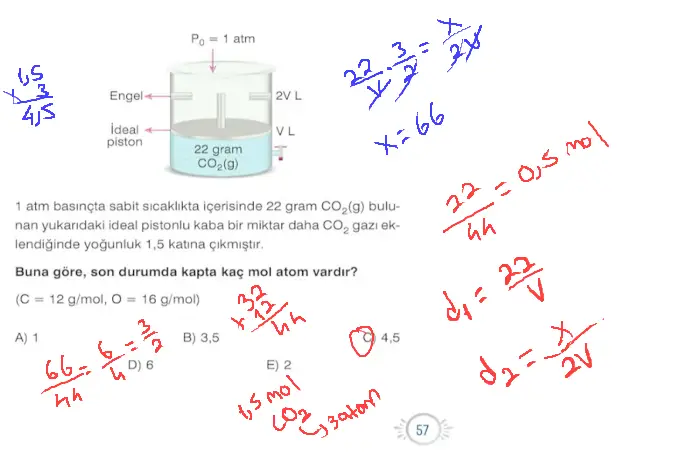 P₀ = 1 atm
Engel
2V L
İdeal
piston
V L
22 gram
CO₂(g)
1,5
x 3
4,5
22/V · 3/2 = x/2V
x = 66
1 atm basınçta sabit sıcaklıkta içerisinde 22 gram CO₂(g) bulu-
nan yukarıdaki ideal pistonlu kaba bir miktar daha CO₂ gazı ek-
lendiğinde yoğunluk 1,5 katına çıkmıştır.
Buna göre, son durumda kapta kaç mol atom vardır?
(C = 12 g/mol, O = 16 g/mol)
A) 1
B) 3,5
C) 4,5
D) 6
E) 2
22/44 = 0,5 mol
d₁ = 22/V
d₂ = x/2V
32
x 12
44
66/44 = 6/4 = 3/2
1,5 mol
CO₂
3 atom
57